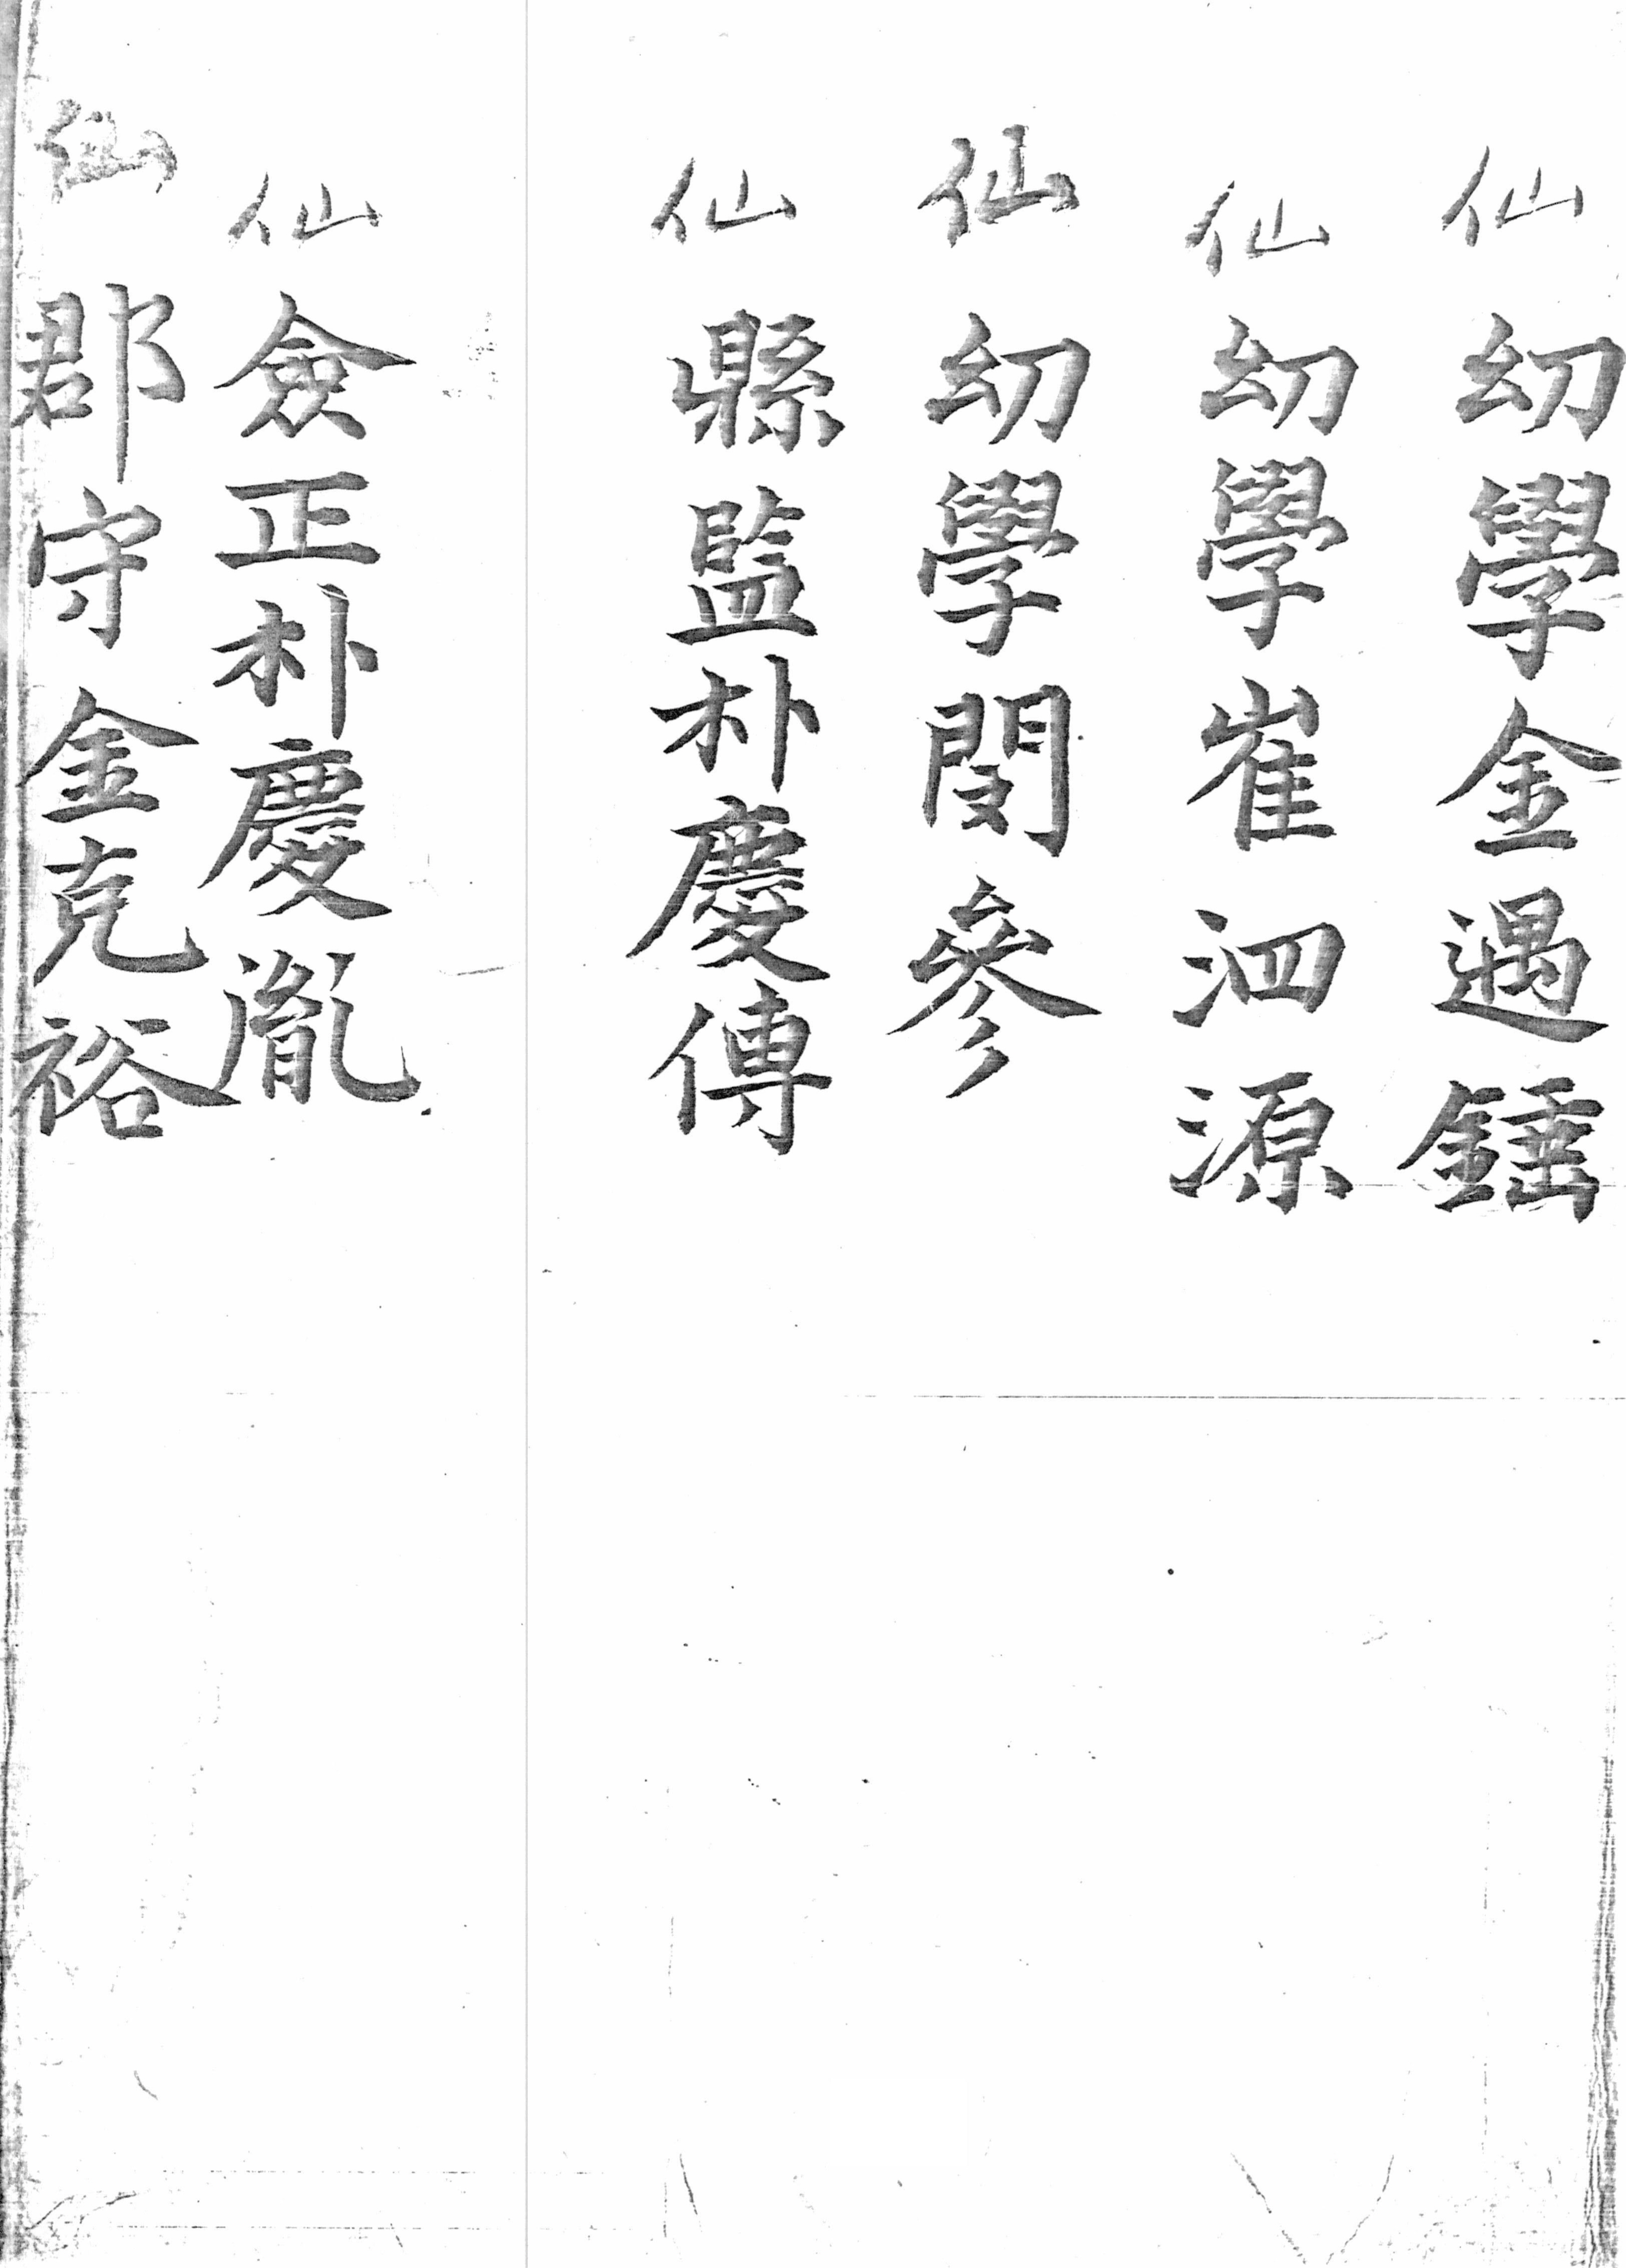 仙 幼學金遇錘
仙 幼學崔泗源
仙 幼學閔參
仙 縣監朴慶傳
仙 僉正朴慶胤
仙 郡守金克裕